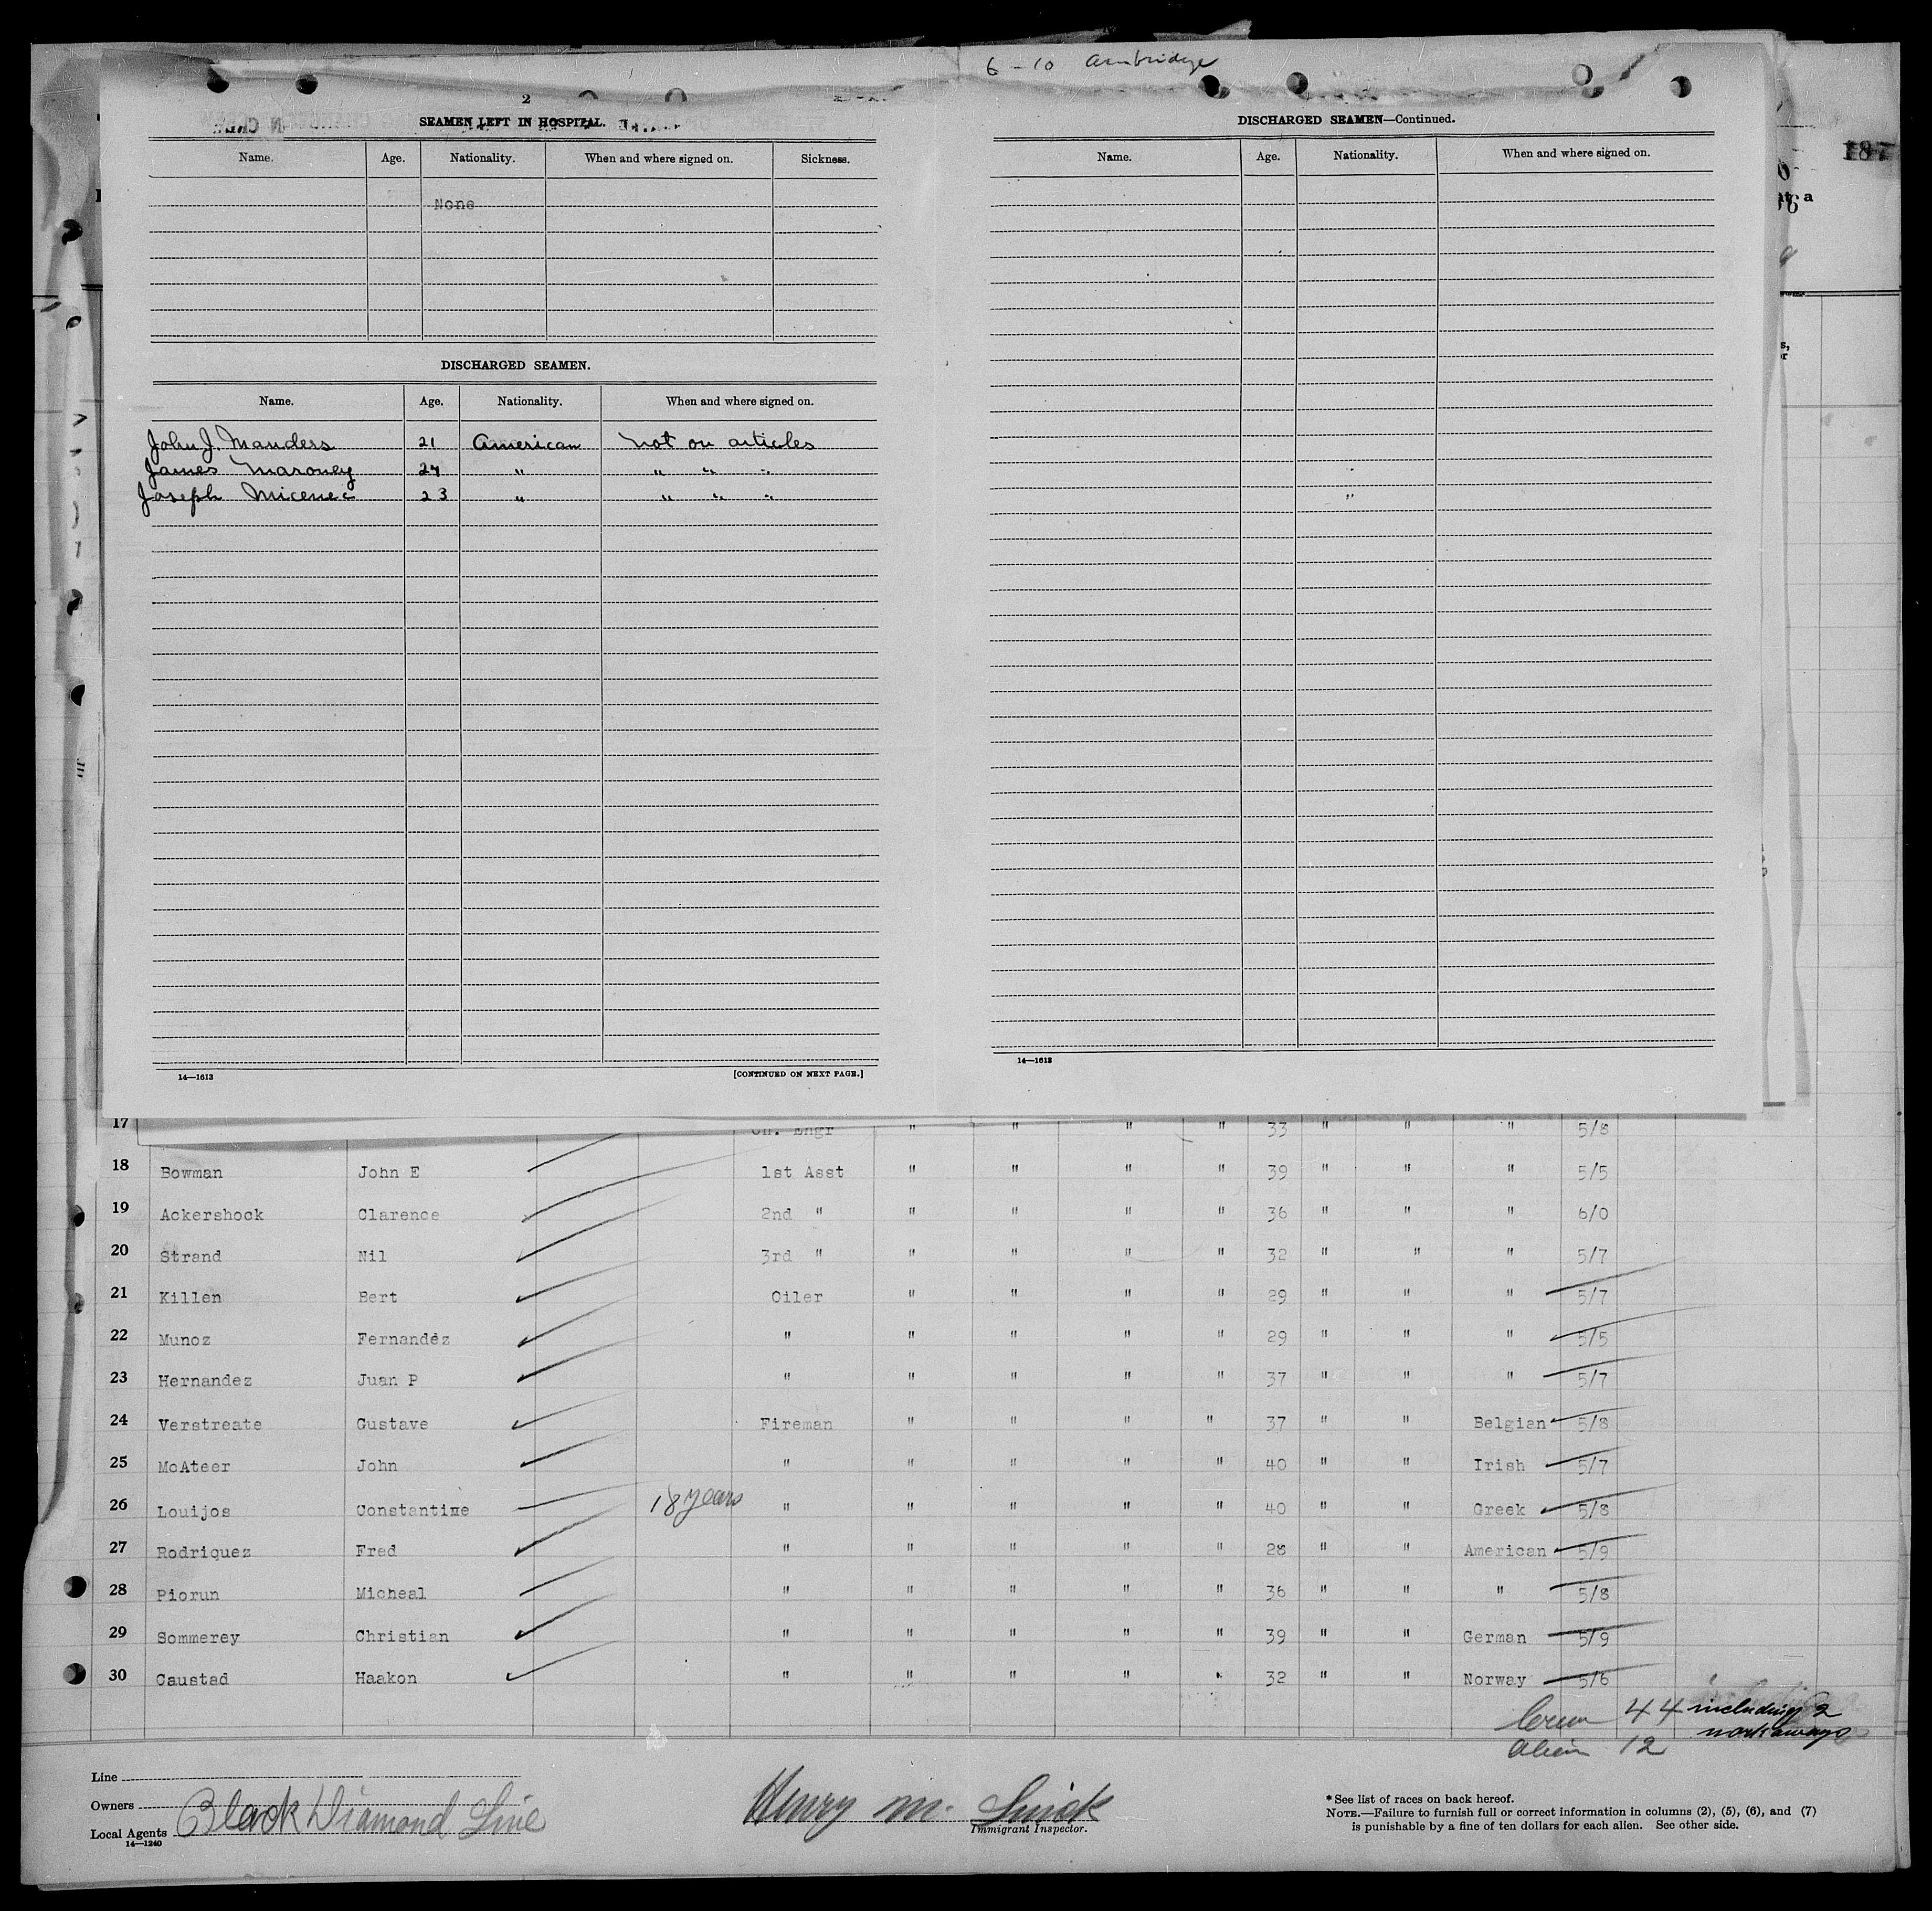 6 - 10 Ambridge
187
2
SEAMEN LEFT IN HOSPITAL.
Name. Age. Nationality. When and where signed on. Sickness.
None
DISCHARGED SEAMEN.
Name. Age. Nationality. When and where signed on.
John J. Manders 21 American not on articles
James Maroney 24 " " " "
Joseph Micenec 23 " " " "
14—1613 [CONTINUED ON NEXT PAGE.]
DISCHARGED SEAMEN—Continued.
Name. Age. Nationality. When and where signed on.
"
14—1613
17 Ch. Engr " " " " 33 " " " 5/8
18 Bowman John E 1st Asst " " " " 39 " " " 5/5
19 Ackershock Clarence 2nd " " " " " 36 " " " 6/0
20 Strand Nil 3rd " " " " " 32 " " " 5/7
21 Killen Bert Oiler " " " " 29 " " " 5/7
22 Munoz Fernandez " " " " " 29 " " " 5/5
23 Hernandez Juan P " " " " " 37 " " " 5/7
24 Verstreate Gustave Fireman " " " " 37 " " Belgian 5/8
25 McAteer John " " " " " 40 " " Irish 5/7
26 Louijos Constantine 18 years " " " " " 40 " " Greek 5/8
27 Rodriquez Fred " " " " " 28 " " American 5/9
28 Piorun Micheal " " " " " 36 " " " 5/8
29 Sommerey Christian " " " " " 39 " " German 5/9
30 Caustad Haakon " " " " " 32 " " Norway 5/6
Crew 44 including 2
workaways
Alien 12
Line
Owners
Black Diamond Line
Local Agents
14—1240
Henry M.
Immigrant Inspector.
* See list of races on back hereof.
NOTE.—Failure to furnish full or correct information in columns (2), (5), (6), and (7)
is punishable by a fine of ten dollars for each alien. See other side.